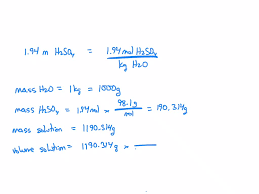 1.94 m H2SO4 = 1.94 mol H2SO4 / kg H2O
mass H2O = 1 kg = 1000g
mass H2SO4 = 1.94 mol × 98.1 g / mol = 190.314g
mass solution = 1190.314g
volume solution = 1190.314g ×